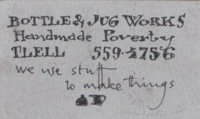 BOTTLE & JUG WORKS
Handmade Poverty
TLELL 559-4756
we use stuff
to make things